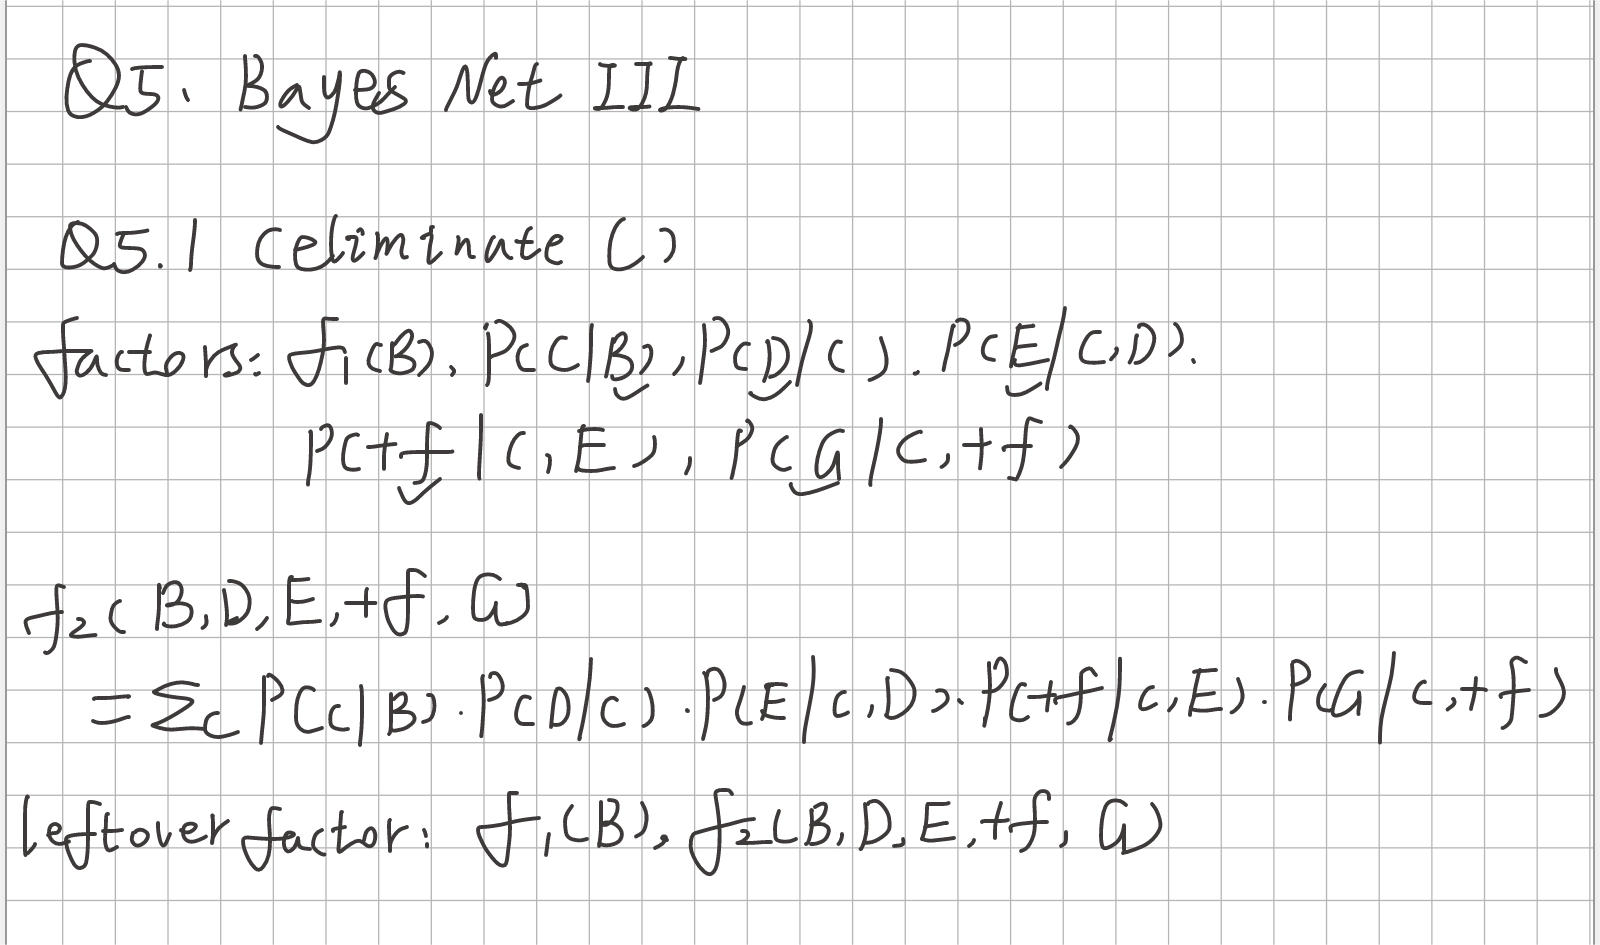 Q5. Bayes Net III
Q5.1 (eliminate C)
factors: f1(B), P(C|B), P(D|C), P(E|C,D).
P(+f|C,E), P(G|C,+f)
f2(B,D,E,+f,G)
=Σc P(C|B)·P(D|C)·P(E|C,D)·P(+f|C,E)·P(G|C,+f)
leftover factor: f1(B), f2(B,D,E,+f,G)